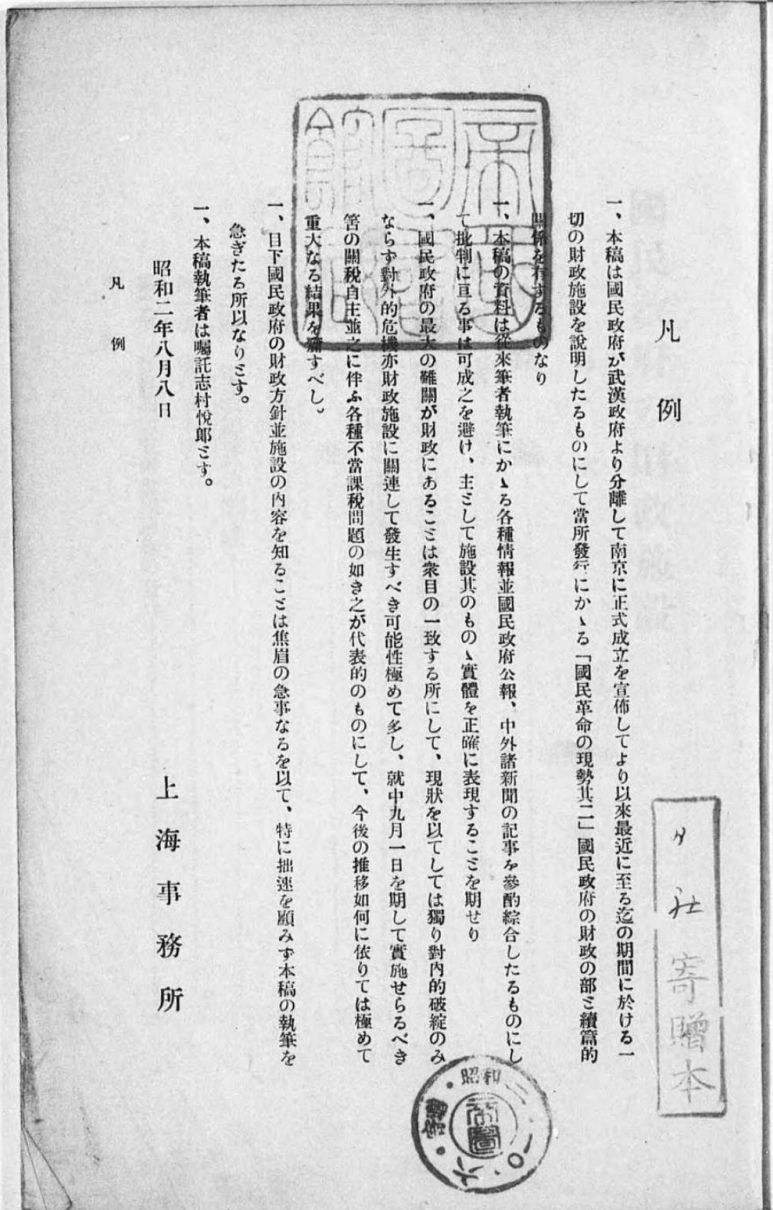 凡例
一、本稿は國民政府が武漢政府より分離して南京に正式成立を宣佈してより以來最近に至る迄の期間に於ける一
切の財政施設を說明したるものにして當所發行にかゝる「國民革命の現勢其二」國民政府の財政の部と續篇的
關係を有するものなり
一、本稿の資料は從來筆者執筆にかゝる各種情報並國民政府公報、中外諸新聞の記事を參酌綜合したるものにし
て批判に亘る事は可成之を避け、主として施設其のものゝ實體を正確に表現することを期せり
一、國民政府の最大の難關が財政にあることは衆目の一致する所にして、現狀を以てしては獨り對內的破綻のみ
ならず對外的危機亦財政施設に關連して發生すべき可能性極めて多し、就中九月一日を期して實施せらるべき
筈の關稅自主並之に伴ふ各種不當課稅問題の如き之が代表的のものにして、今後の推移如何に依りては極めて
重大なる結果を齎すべし。
一、目下國民政府の財政方針並施設の內容を知ることは焦眉の急事なるを以て、特に拙速を顧みず本稿の執筆を
急ぎたる所以なりとす。
一、本稿執筆者は囑託志村悅郎とす。
昭和二年八月八日
上海事務所
凡例
社寄贈本
帝國圖書館藏
昭和二・一〇・六